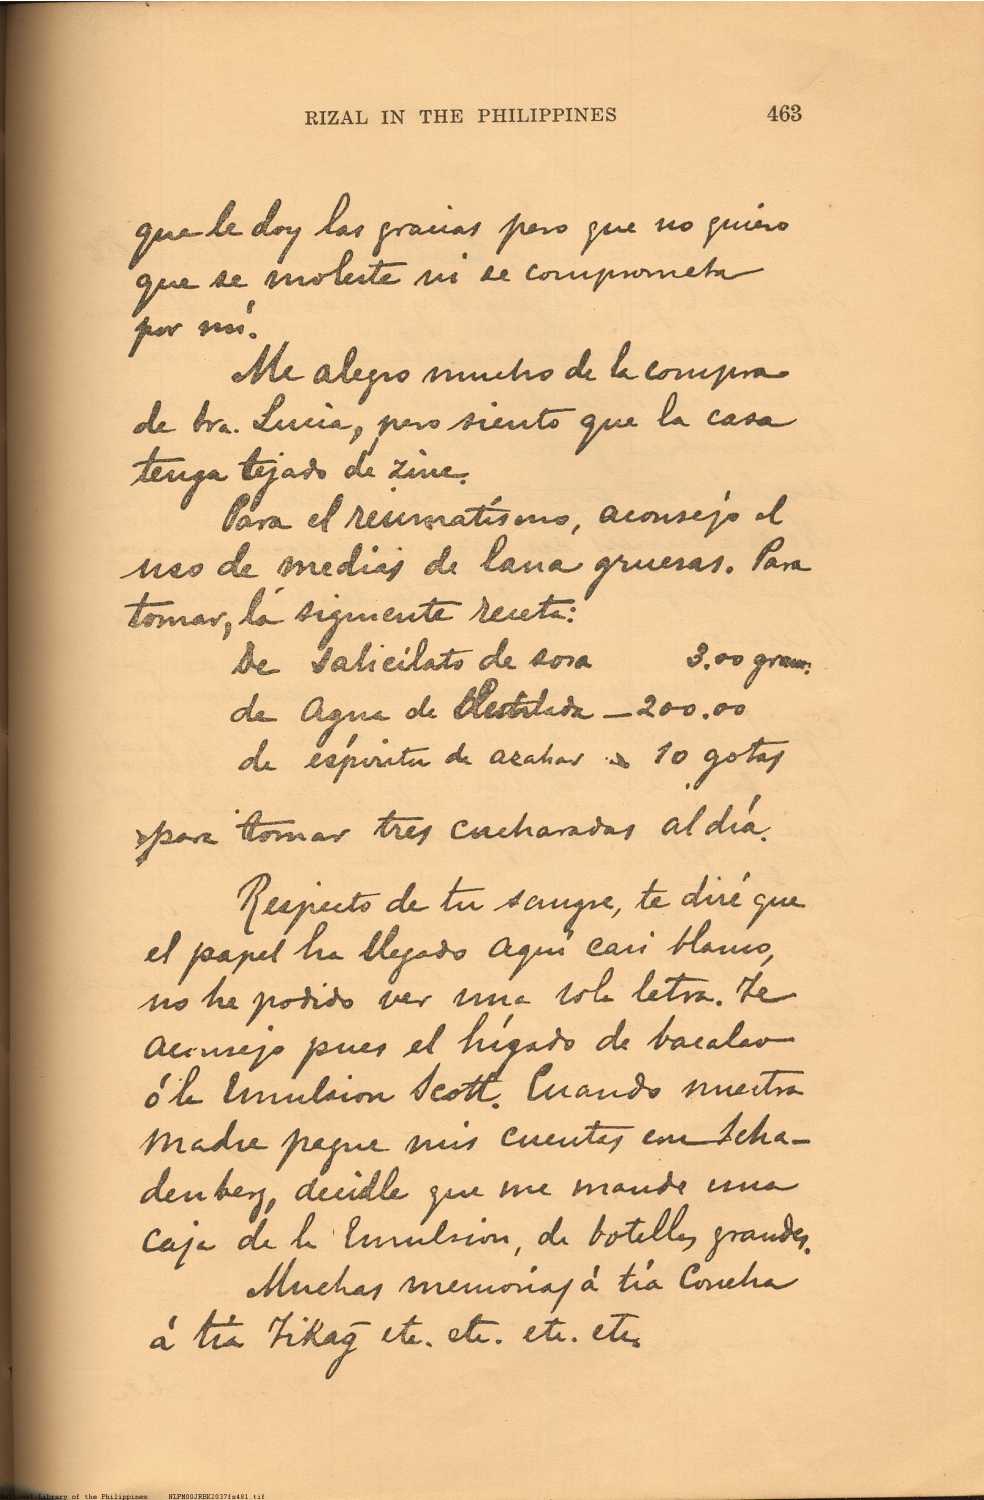 RIZAL IN THE PHILIPPINES 463
que le doy las gracias pero que no quiero
que se moleste ni se comprometa
por mí.
Me alegro mucho de la compra
de Sra. Lucia, pero siento que la casa
tenga tejado de zinc.
Para el reumatismo, aconsejo el
uso de medias de lana gruesas. Para
tomar, la siguiente receta:
De Salicilato de sosa 3.00 gram.
de Agua de Destilada — 200.00
de espiritu de azahar 10 gotas
para tomar tres cucharadas al día.
Respecto de tu sangre, te diré que
el papel ha llegado aquí casi blanco,
no he podido ver una sola letra. Te
aconsejo pues el hígado de bacalao
ó la Emulsion Scott. Cuando nuestra
madre pague mis cuentas con Scha-
denberg, decidle que me mande una
caja de la Emulsion, de botellas grandes.
Muchas memorias á tía Concha
á tía Tikag̃ etc. etc. etc. etc.
Library of the Philippines NLPM00JRBK2037fs481.tif